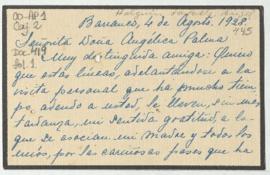 00-AP1
Caj. 2
Doc. 419
fol. 1.
445
Barranco, 4 de Agosto, 1928.
Señorita Doña Angélica Palma
Muy distinguida amiga: Quiero
que estas líneas, adelantándose a la
visita personal que ha mucho tiem-
po, adeudo a usted, le lleven, sin más
tardanza, mi sentida gratitud, a la
que se asocian, mi madre y todos los
míos, por las cariñosas frases que ha